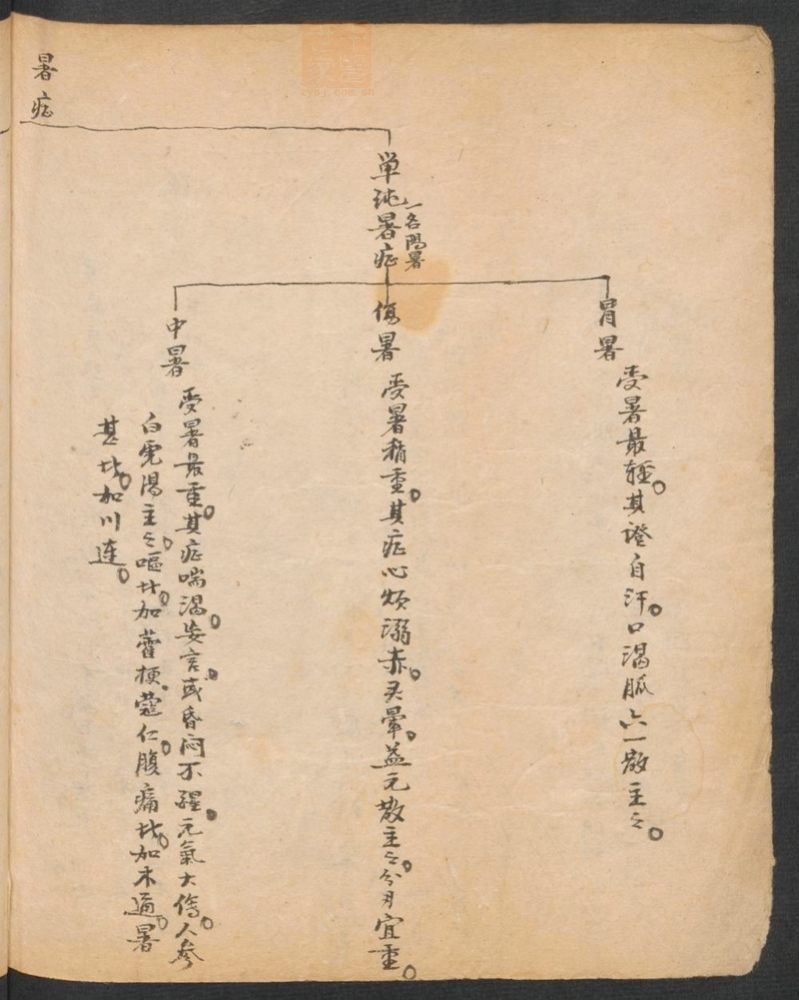 暑症
单纯暑症
一名陽暑
冒暑
受暑最輕。其證自汗。口渴脈六一散主之。
傷暑
受暑稍重。其症心煩溺赤。头暈。益元散主之。分宜重。
中暑
受暑最重。其症喘渴。妄言。或昏闷不醒。元氣大傷。人参
白虎湯主之。嘔者。加藿梗。蔻仁。腹痛者。加木通。暑
甚者。加川連。
zysj.com.cn